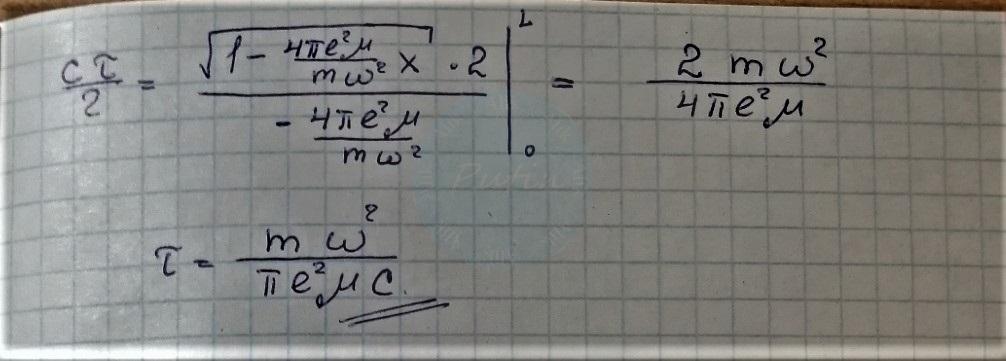 cτ/2 = √(1 - 4πe²μ/mω² x) · 2 / (- 4πe²μ/mω²) |₀ᴸ = 2 mω² / 4πe²μ
τ = mω² / πe²μc